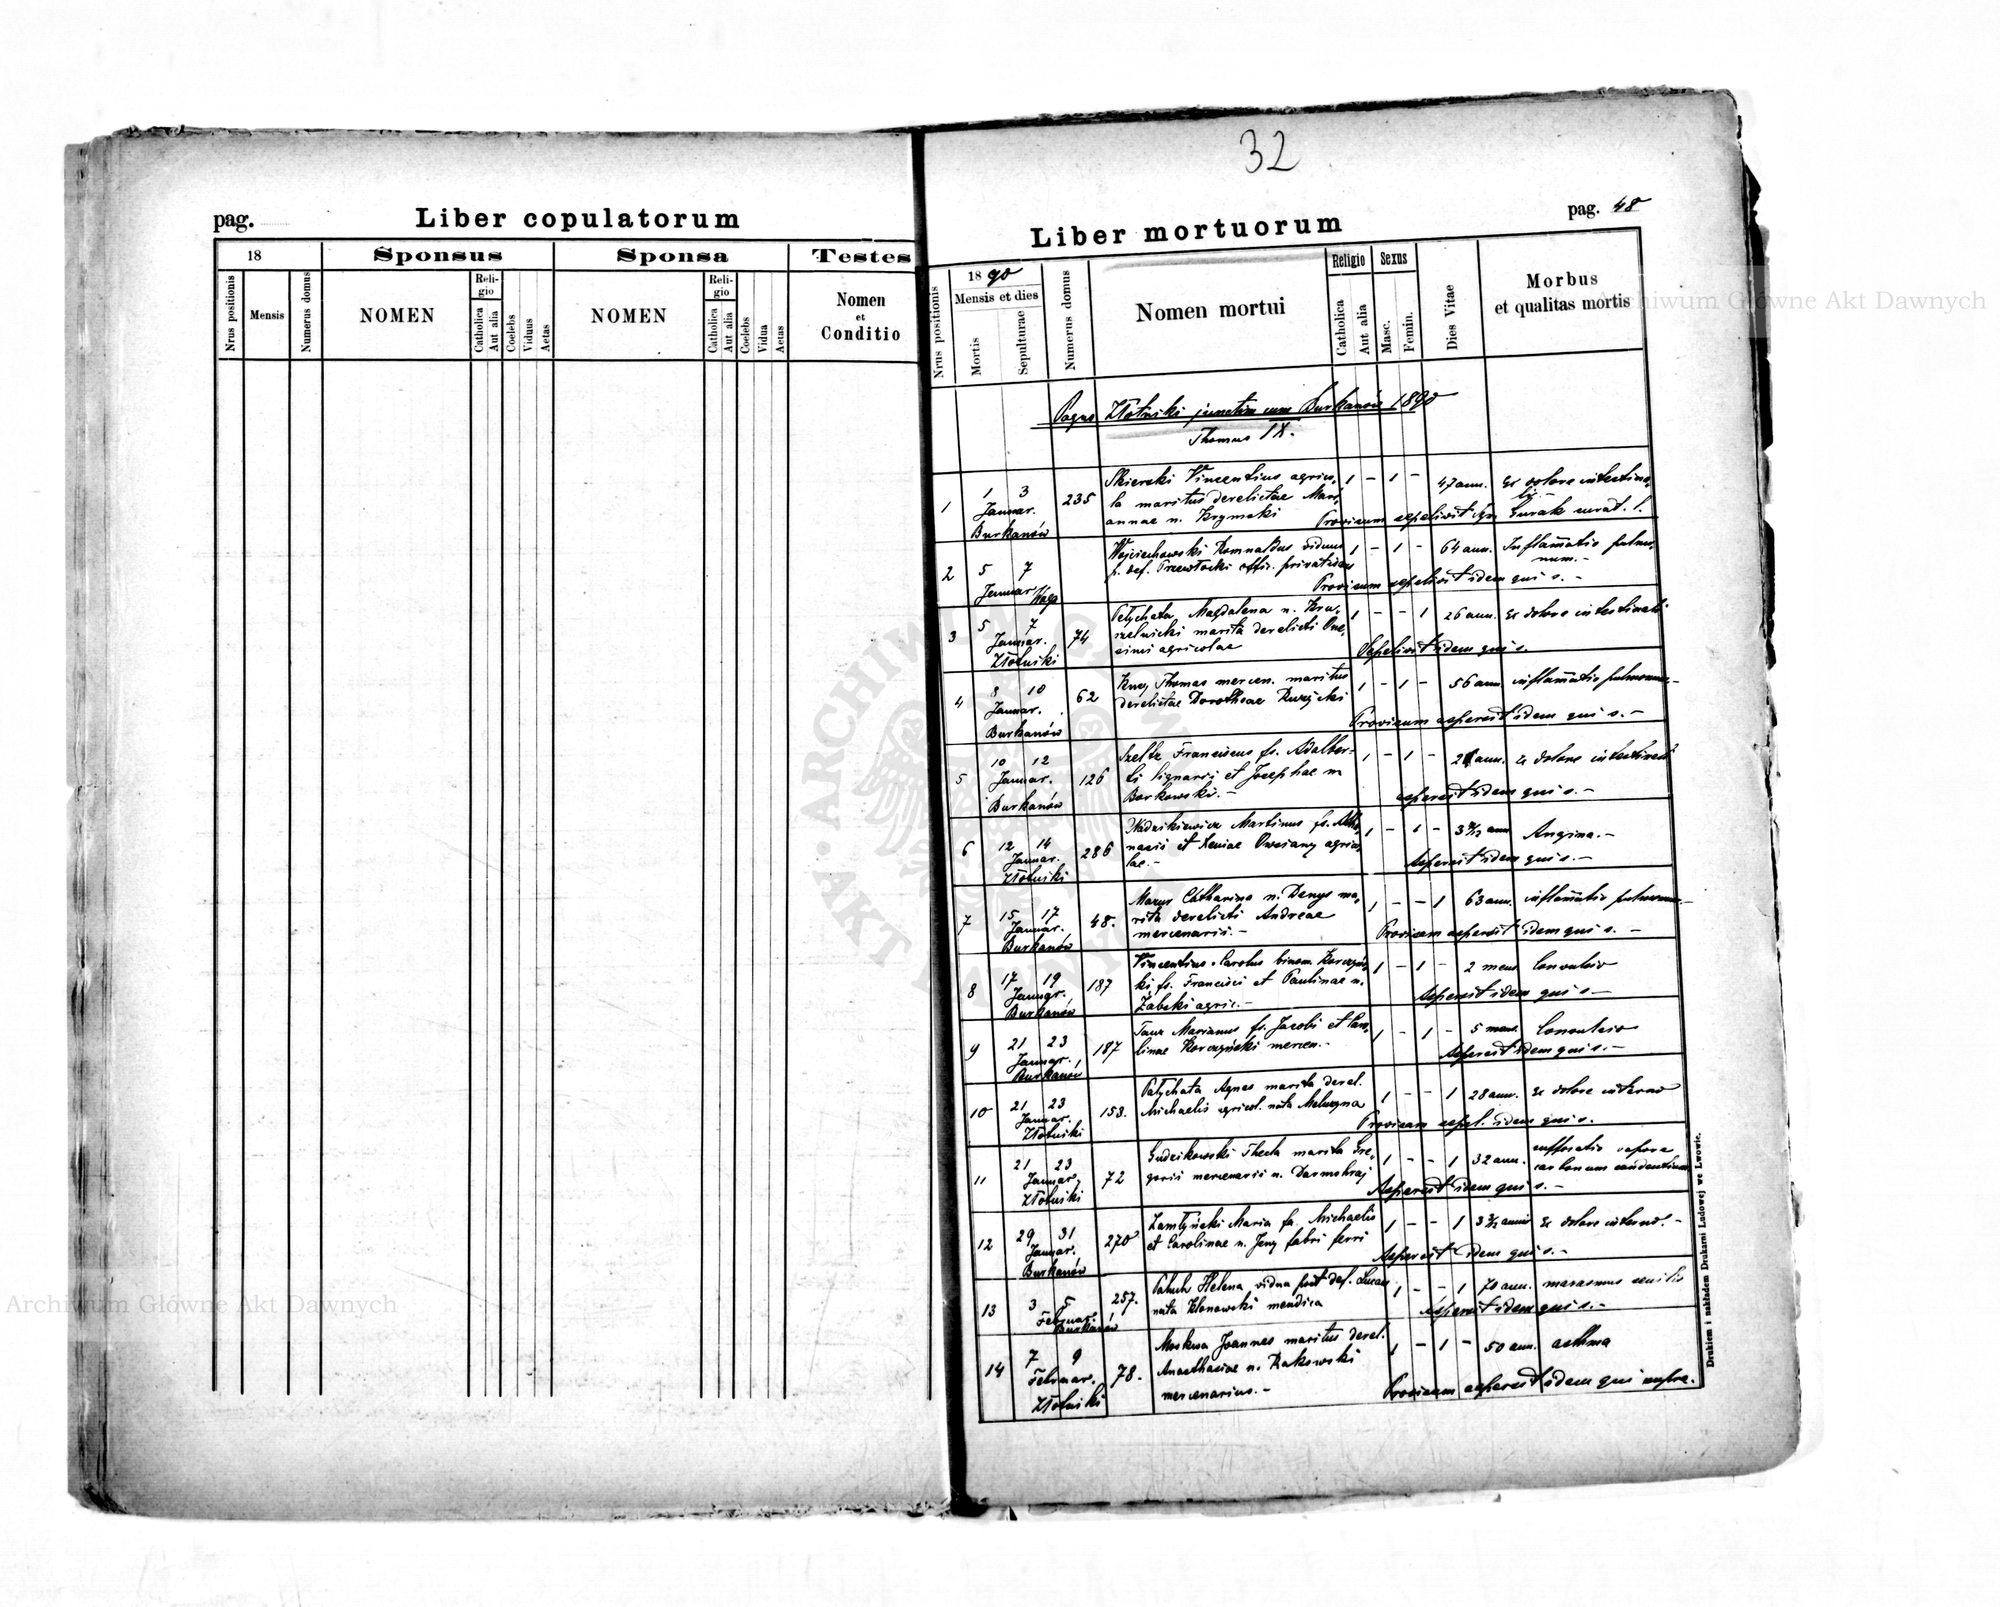 32
pag.
Liber copulatorum
18
Sponsus
Sponsa
Testes
Nrus positionis
Mensis
Numerus domus
NOMEN
Religio
Catholica
Aut alia
Coelebs
Viduus
Aetas
NOMEN
Religio
Catholica
Aut alia
Coelebs
Vidua
Aetas
Nomen
et
Conditio
pag. 48
Liber mortuorum
Nrus positionis
1890
Mensis et dies
Mortis
Sepulturae
Numerus domus
Nomen mortui
Religio
Catholica
Aut alia
Sexus
Masc.
Femin.
Dies Vitae
Morbus
et qualitas mortis
Pagus Złotniki junctim cum Burkanów 1890
Thomus IX.
1 1 3 Januar. Burkanów 235
Skierski Vincentius agrico-
la maritus derelictae Mari-
annae n. Krymski
1 - 1 - 47 ann. Ex dolore intestina-
li -
Provisum sepelivit Gurak curat. l.
2 5 7 Januar
Wojciechowski Romualdus viduus
p. def. Przewłocki offic. privatus
1 - 1 - 64 ann. Inflam̄atio pulmo-
num. -
Provisum sepelivit idem qui s. -
3 5 7 Januar. Złotniki 74
Petychata Magdalena n. Kru-
szelnicki marita derelicti One-
simi agricolae
1 - - 1 26 ann. Ex dolore intestinali
Sepelivit idem qui s.
4 8 10 Januar. Burkanów 62
Thomas mercen. maritus
derelictae Dorotheae Ruzycki
1 - 1 - 56 ann. inflam̄atio pulmonum -
Provisum aspersit idem qui s. -
5 10 12 Januar. Burkanów 126
Szeltz Franciscus fs. Adalber-
ti lignarii et Josephae n.
Borkowski. -
1 - 1 - ann. Ex dolore intestinali
aspersit idem qui s. -
6 12 14 Januar. Złotniki 286
Martinus fs. Atha-
nasii et Xeniae Owsiany agrico-
lae. -
1 - 1 - ann Angina. -
Aspersit idem qui s. -
7 15 17 Januar. Burkanów 48.
Mazur Catharina n. Denys ma-
rita derelicti Andreae
mercenarii. -
1 - - 1 63 ann. inflam̄atio pulmonum -
Provisam aspersit idem qui s. -
8 17 19 Januar. Burkanów 187
Vincentius Carolus binom. Korczyń-
ski fs. Francisci et Paulinae n.
Żabski agric. -
1 - 1 - 2 mens Convulsio
Aspersit idem qui s. -
9 21 23 Januar. Burkanów 187
Marianus fs. Jacobi et Pau-
linae Korczyński mercen. -
1 - 1 - 5 mens. Convulsio
Aspersit idem qui s. -
10 21 23 Januar. Złotniki 153.
Patychata Agnes marita derel.
Michaelis agricol. nata Meluzyna
1 - - 1 28 ann. Ex dolore interno
Provisam sepel. idem qui s.
11 21 23 Januar. Złotniki 72
Gudzikowski Thecla marita Gre-
gorii mercenarii n. Darmohraj
1 - - 1 32 ann. suffocatio vapore
carbonum candentium
Aspersit idem qui s. -
12 29 31 Januar. Burkanów 270
Zamłyński Maria fa. Michaelis
et Carolinae n. Jeny fabri ferri
1 - - 1 annis Ex dolore interno. -
Aspersit idem qui s. -
13 3 5 Februar. Burkanów 257.
Patuch Helena vidua post def. Lucam
nata Klonowski mendica
1 - - 1 70 ann. marasmus senilis
Aspersit idem qui s. -
14 7 9 Februar. Złotniki 78.
Moskwa Joannes maritus derel.
Anasthasiae n. Rakowski
mercenarius. -
1 - 1 - 50 ann. asthma
Provisum aspersit idem qui supra.
Drukiem i nakładem Drukarni Ludowej we Lwowie.
Archiwum Główne Akt Dawnych
Archiwum Główne Akt Dawnych